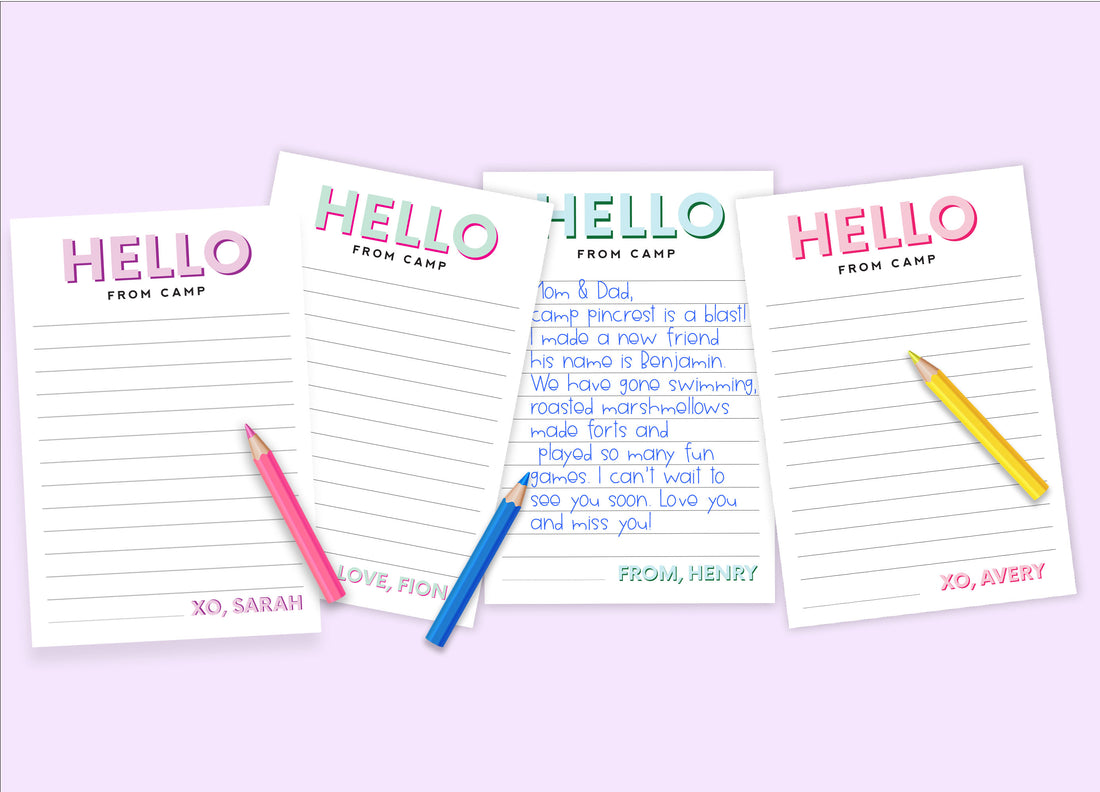 HELLO
FROM CAMP
XO, SARAH
HELLO
FROM CAMP
LOVE, FION
HELLO
FROM CAMP
Mom & Dad,
camp pincrest is a blast!
I made a new friend
his name is Benjamin.
We have gone swimming,
roasted marshmellows
made forts and
played so many fun
games. I can't wait to
see you soon. Love you
and miss you!
FROM, HENRY
HELLO
FROM CAMP
XO, AVERY